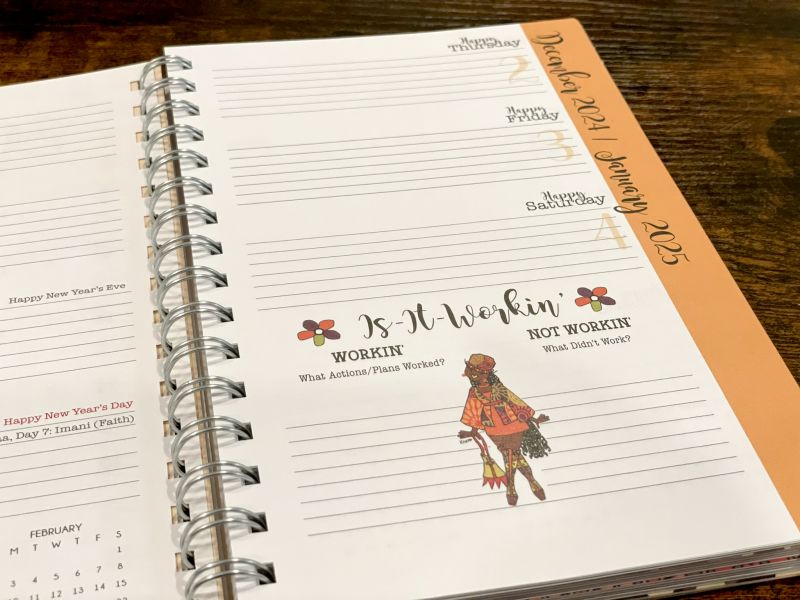 Happy New Year's Eve
Happy New Year's Day
Day 7: Imani (Faith)
FEBRUARY
M T W T F S
1
3 4 5 6 7 8
10 11 12 13 14 15
Happy
Thursday
2
Happy
Friday
3
Happy
Saturday
4
December 2024 / January 2025
Is-It-Workin'
WORKIN'
What Actions/Plans Worked?
NOT WORKIN'
What Didn't Work?